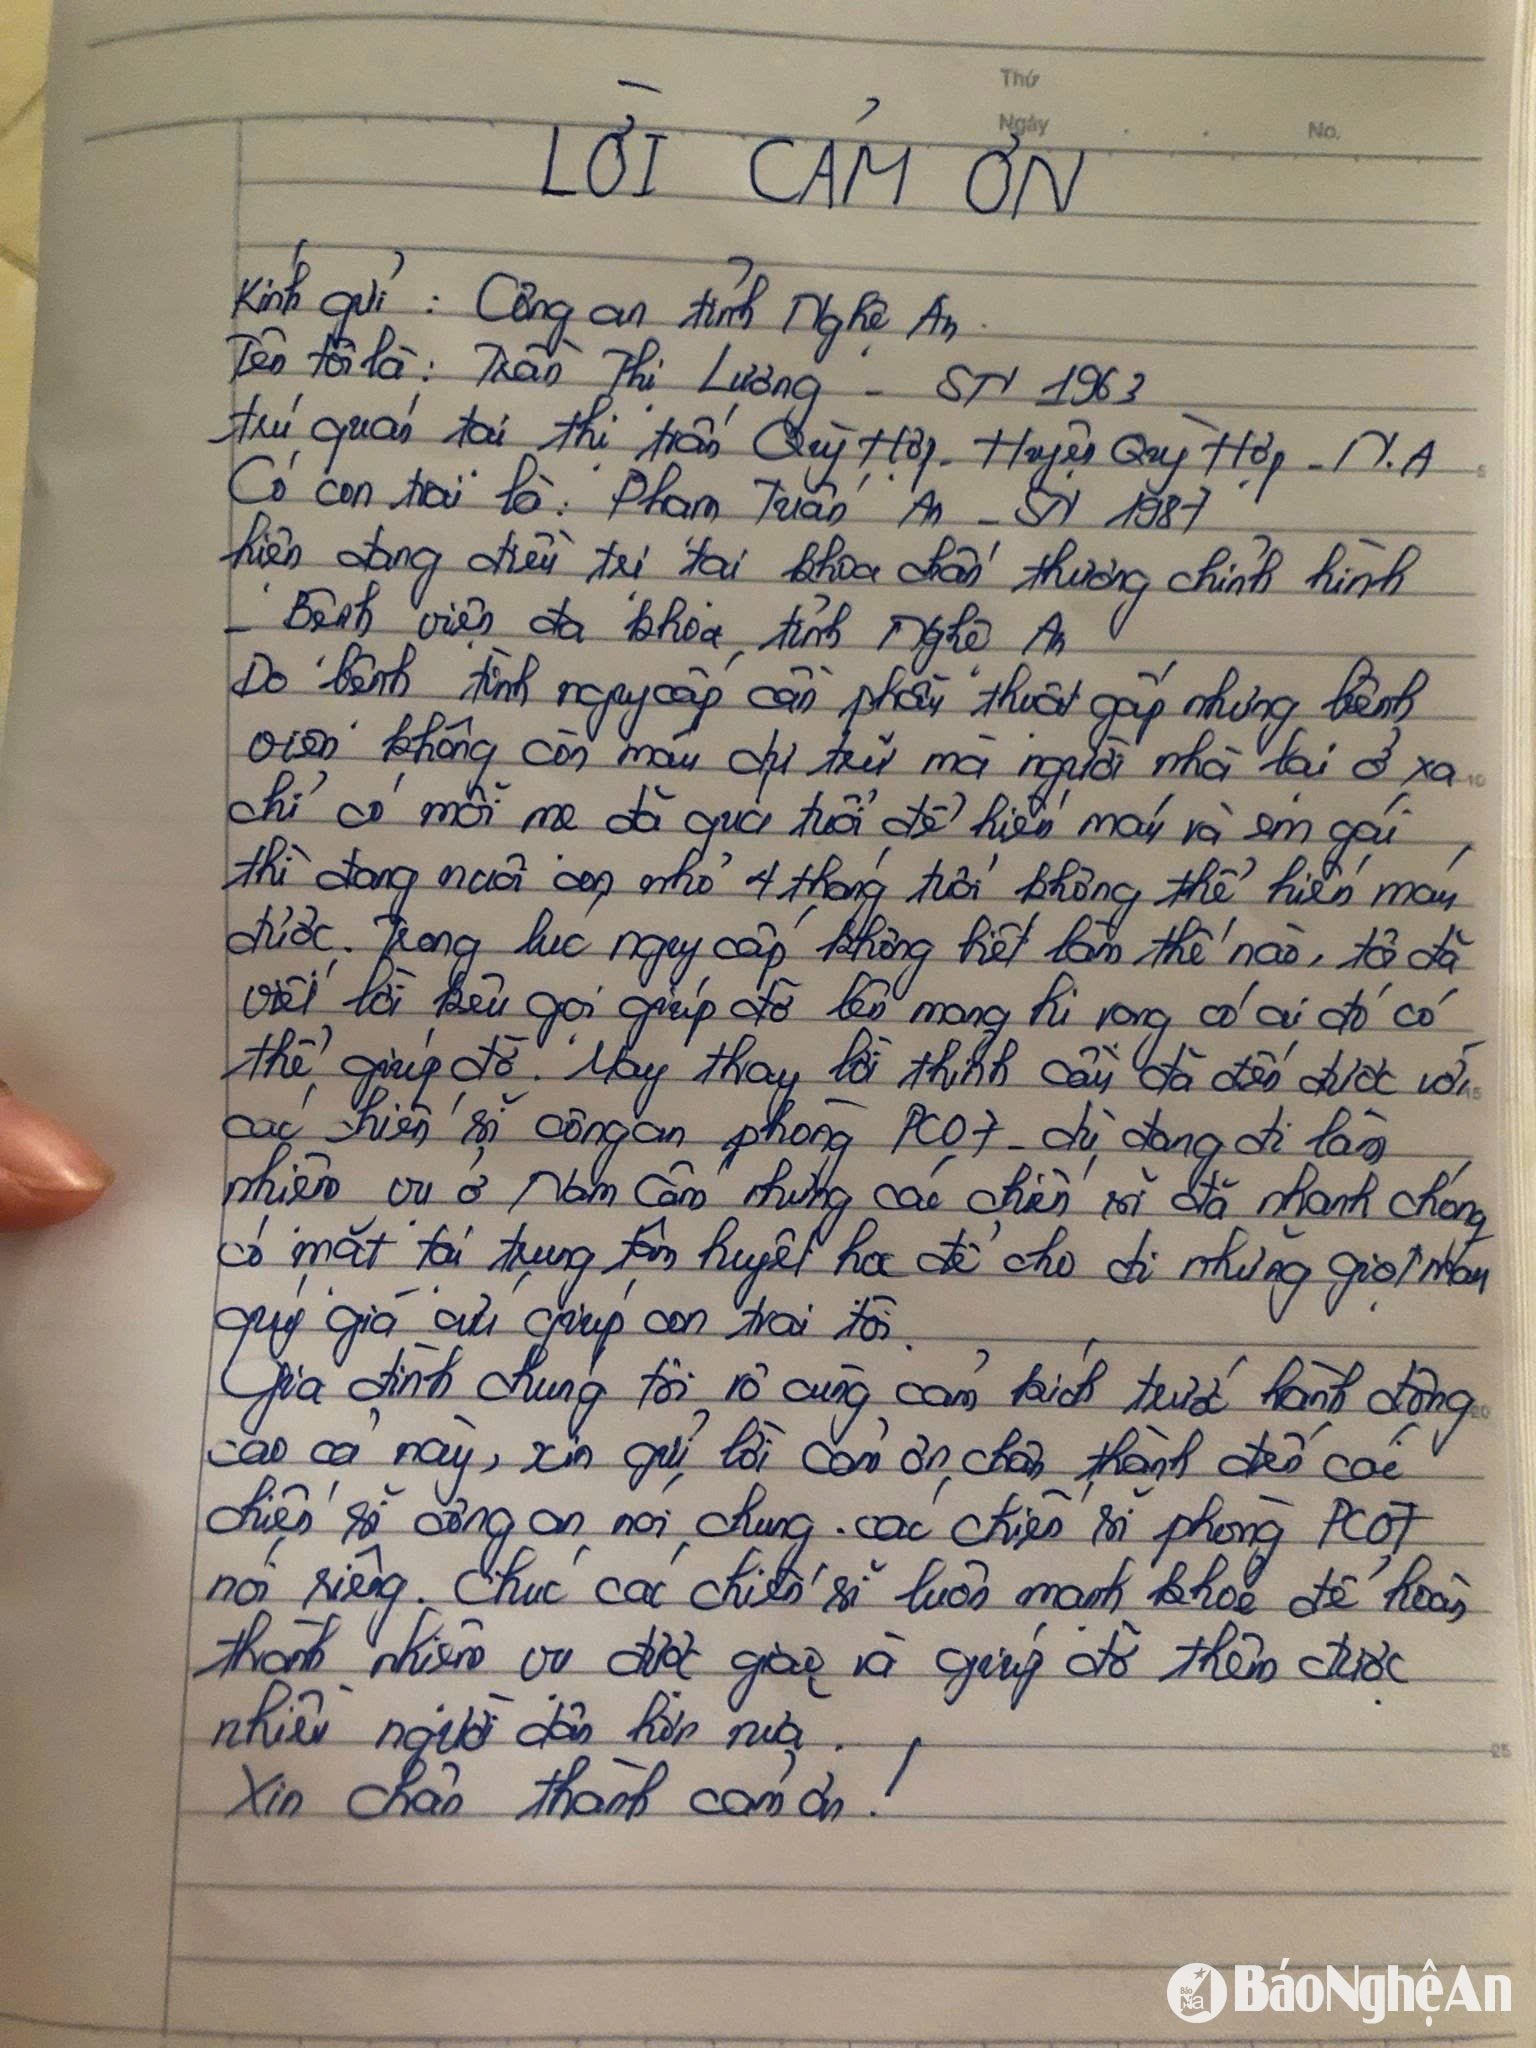 Thứ
Ngày No.
LỜI CẢM ƠN
Kính gửi : Công an tỉnh Nghệ An.
Tên tôi là : Trần Thị Lương - SN 1963
trú quán tại thị trấn Quỳ Hợp - Huyện Quỳ Hợp - N.A
Có con trai là : Phạm Tuấn An - SN 1987
hiện đang điều trị tại khoa chấn thương chỉnh hình
- Bệnh viện đa khoa tỉnh Nghệ An
Do bệnh tình nguy cấp cần phẫu thuật gấp nhưng bệnh
viện không còn máu dự trữ mà người nhà lại ở xa
chỉ có mỗi mẹ đã quá tuổi để hiến máu và em gái
thì đang nuôi con nhỏ 4 tháng tuổi không thể hiến máu
được. Trong lúc nguy cấp không biết làm thế nào, tôi đã
viết lời kêu gọi giúp đỡ lên mạng hi vọng có ai đó có
thể giúp đỡ. May thay lời thỉnh cầu đã đến được với
các chiến sĩ công an phòng PC07 - dù đang đi làm
nhiệm vụ ở Nậm Cắn nhưng các chiến sĩ đã nhanh chóng
có mặt tại trung tâm huyết học để cho đi những giọt máu
quý giá cứu giúp con trai tôi.
Gia đình chúng tôi vô cùng cảm kích trước hành động
cao cả này, xin gửi lời cảm ơn chân thành đến các
chiến sĩ công an nói chung. các chiến sĩ phòng PC07
nói riêng. Chúc các chiến sĩ luôn mạnh khoẻ để hoàn
thành nhiệm vụ được giao và giúp đỡ thêm được
nhiều người dân hơn nữa.
Xin chân thành cảm ơn !
5
10
15
20
25
BáoNghệAn